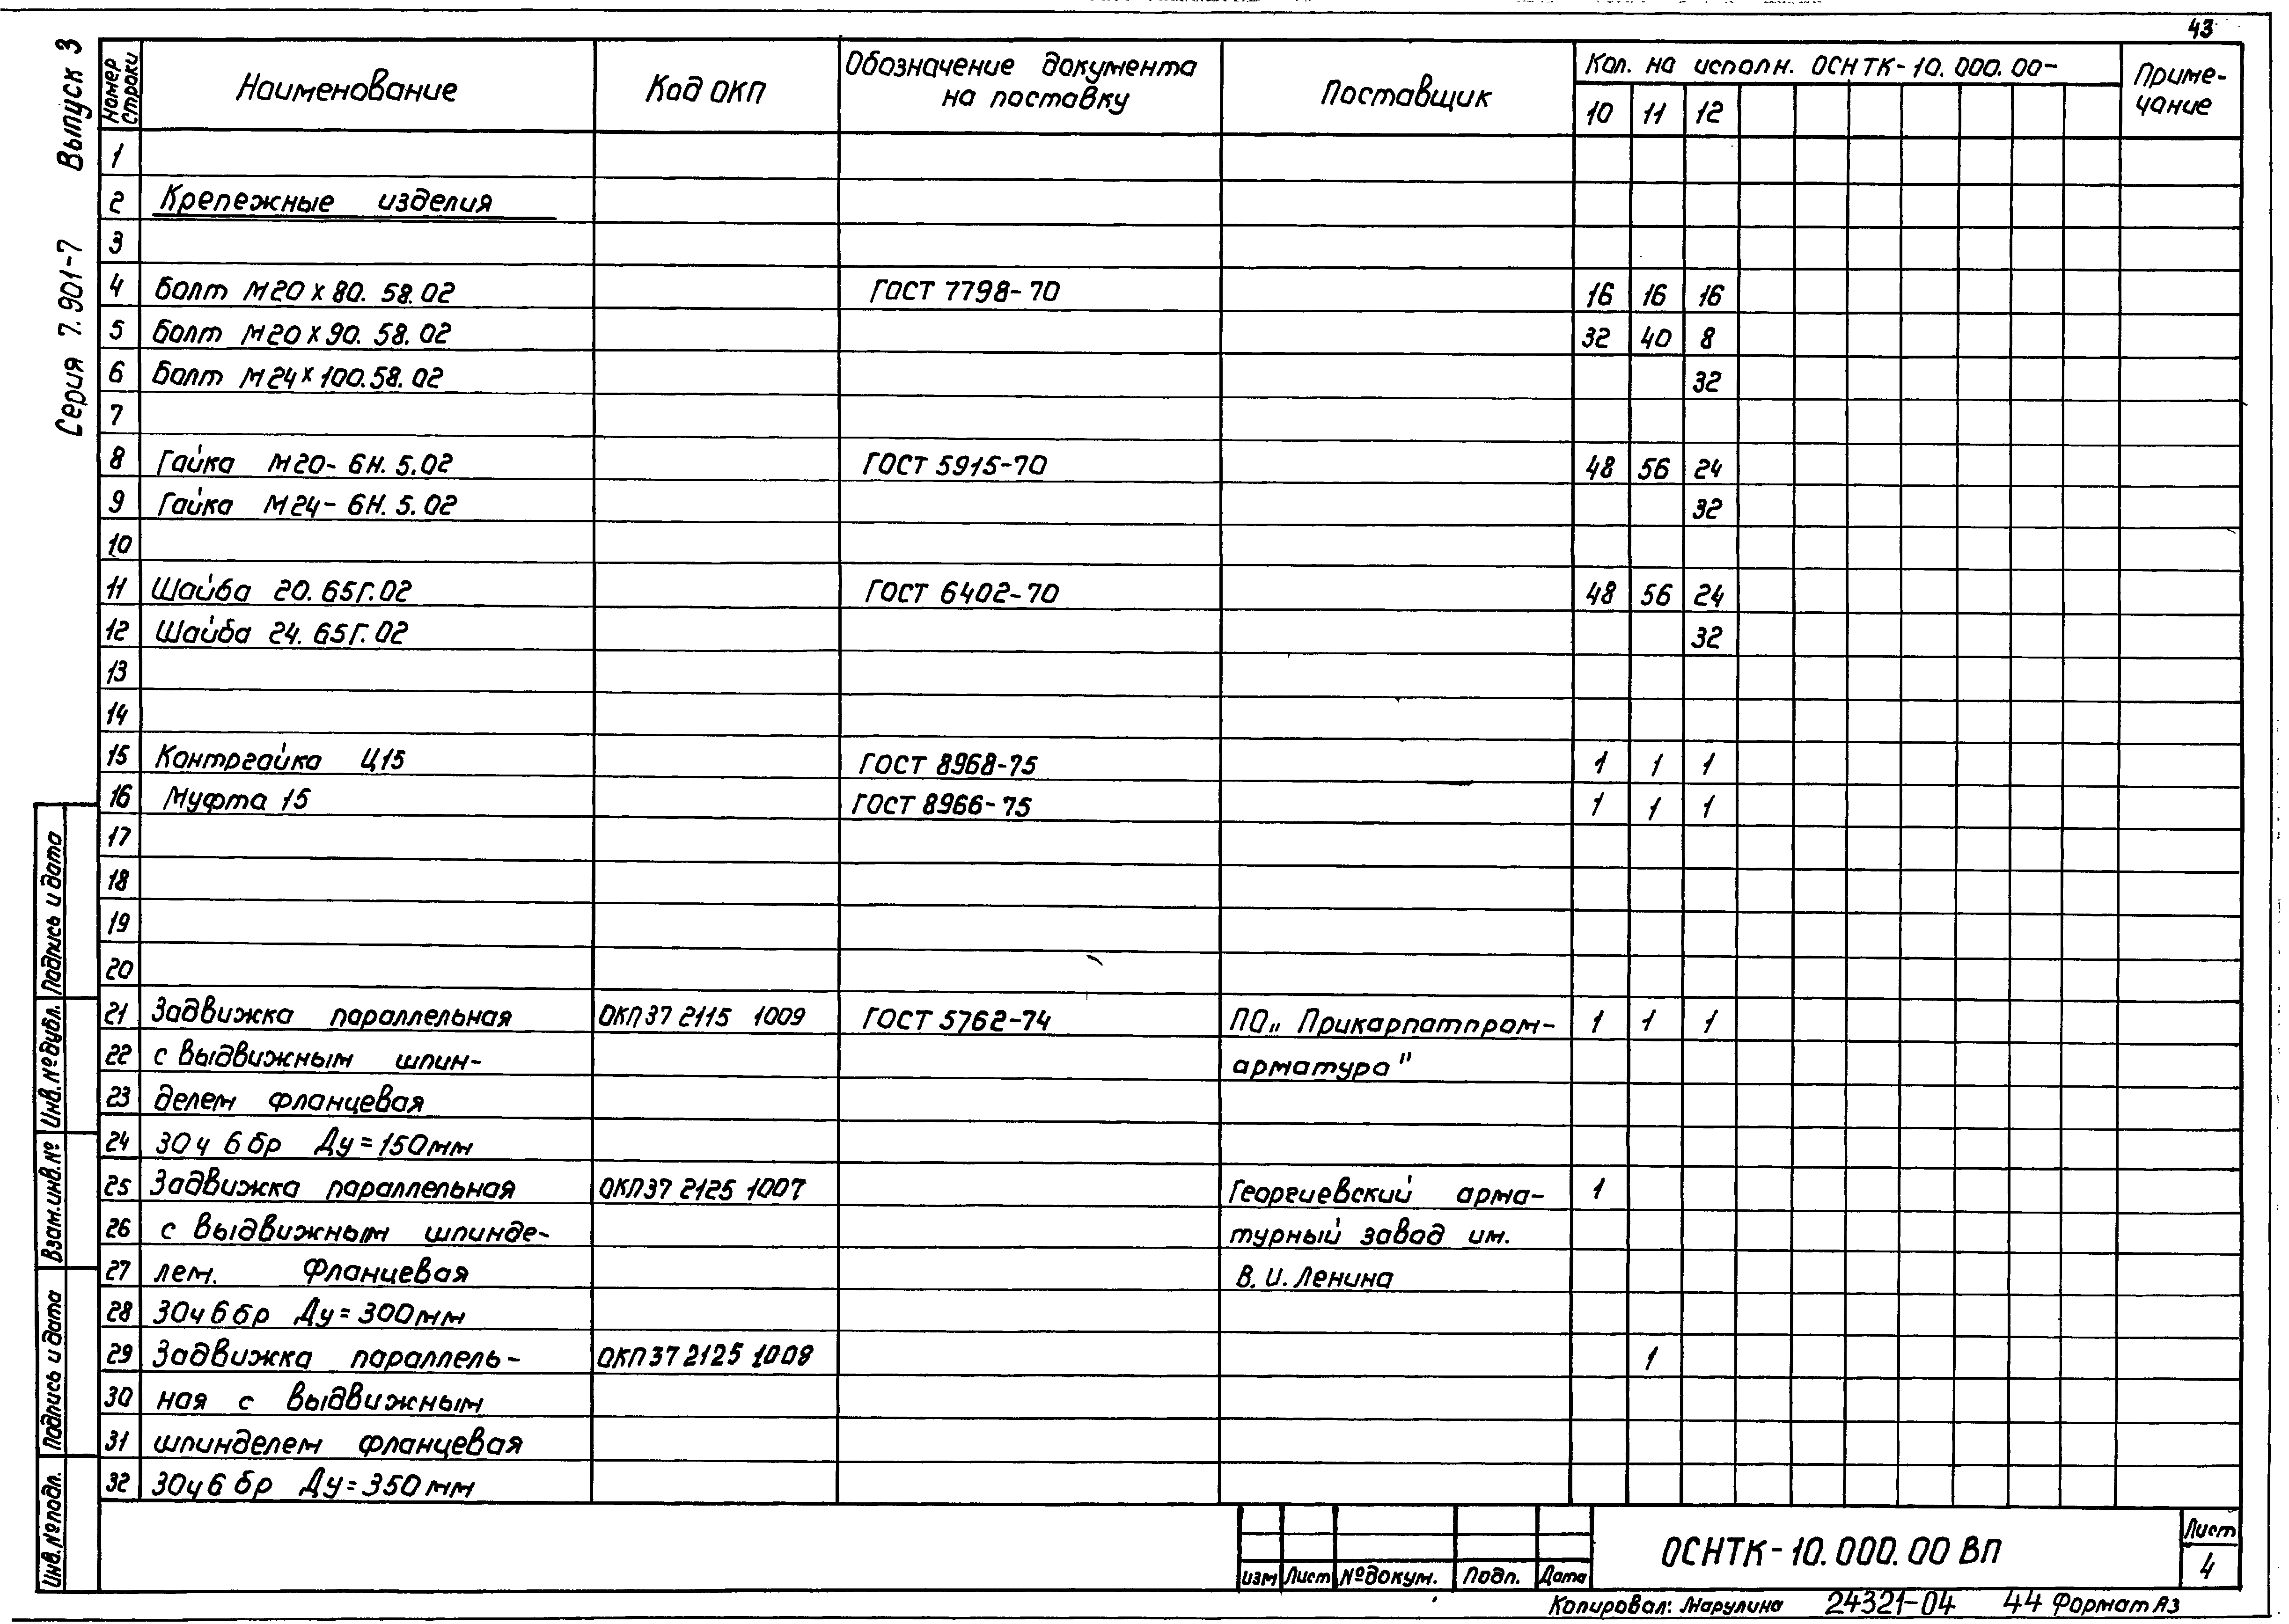 43
Серия 7.901-7 Выпуск 3
Номер строки
Наименование
Код ОКП
Обозначение документа на поставку
Поставщик
Кол. на исполн. ОСНТК-10.000.00-
10 11 12
Приме-
чание
1
2 Крепежные изделия
3
4 Болт М20х80.58.02 ГОСТ 7798-70 16 16 16
5 Болт М20х90.58.02 32 40 8
6 Болт М24х100.58.02 32
7
8 Гайка М20-6Н.5.02 ГОСТ 5915-70 48 56 24
9 Гайка М24-6Н.5.02 32
10
11 Шайба 20.65Г.02 ГОСТ 6402-70 48 56 24
12 Шайба 24.65Г.02 32
13
14
15 Контргайка Ц15 ГОСТ 8968-75 1 1 1
16 Муфта 15 ГОСТ 8966-75 1 1 1
17
18
19
20
21 Задвижка параллельная ОКП 37 2115 1009 ГОСТ 5762-74 ПО „Прикарпатпром- 1 1 1
22 с выдвижным шпин- арматура"
23 делем фланцевая
24 30ч6бр Ду=150мм
25 Задвижка параллельная ОКП 37 2125 1007 Георгиевский арма- 1
26 с выдвижным шпинде- турный завод им.
27 лем. фланцевая В.И.Ленина
28 30ч6бр Ду=300мм
29 Задвижка параллель- ОКП 37 2125 1008 1
30 ная с выдвижным
31 шпинделем фланцевая
32 30ч6бр Ду=350мм
Инв.№подл. Подпись и дата Взам.инв.№ Инв.№дубл. Подпись и дата
Изм Лист №докум. Подп. Дата
ОСНТК-10.000.00 ВП
Лист
4
Копировал: Марулина 24321-04 44 Формат А3